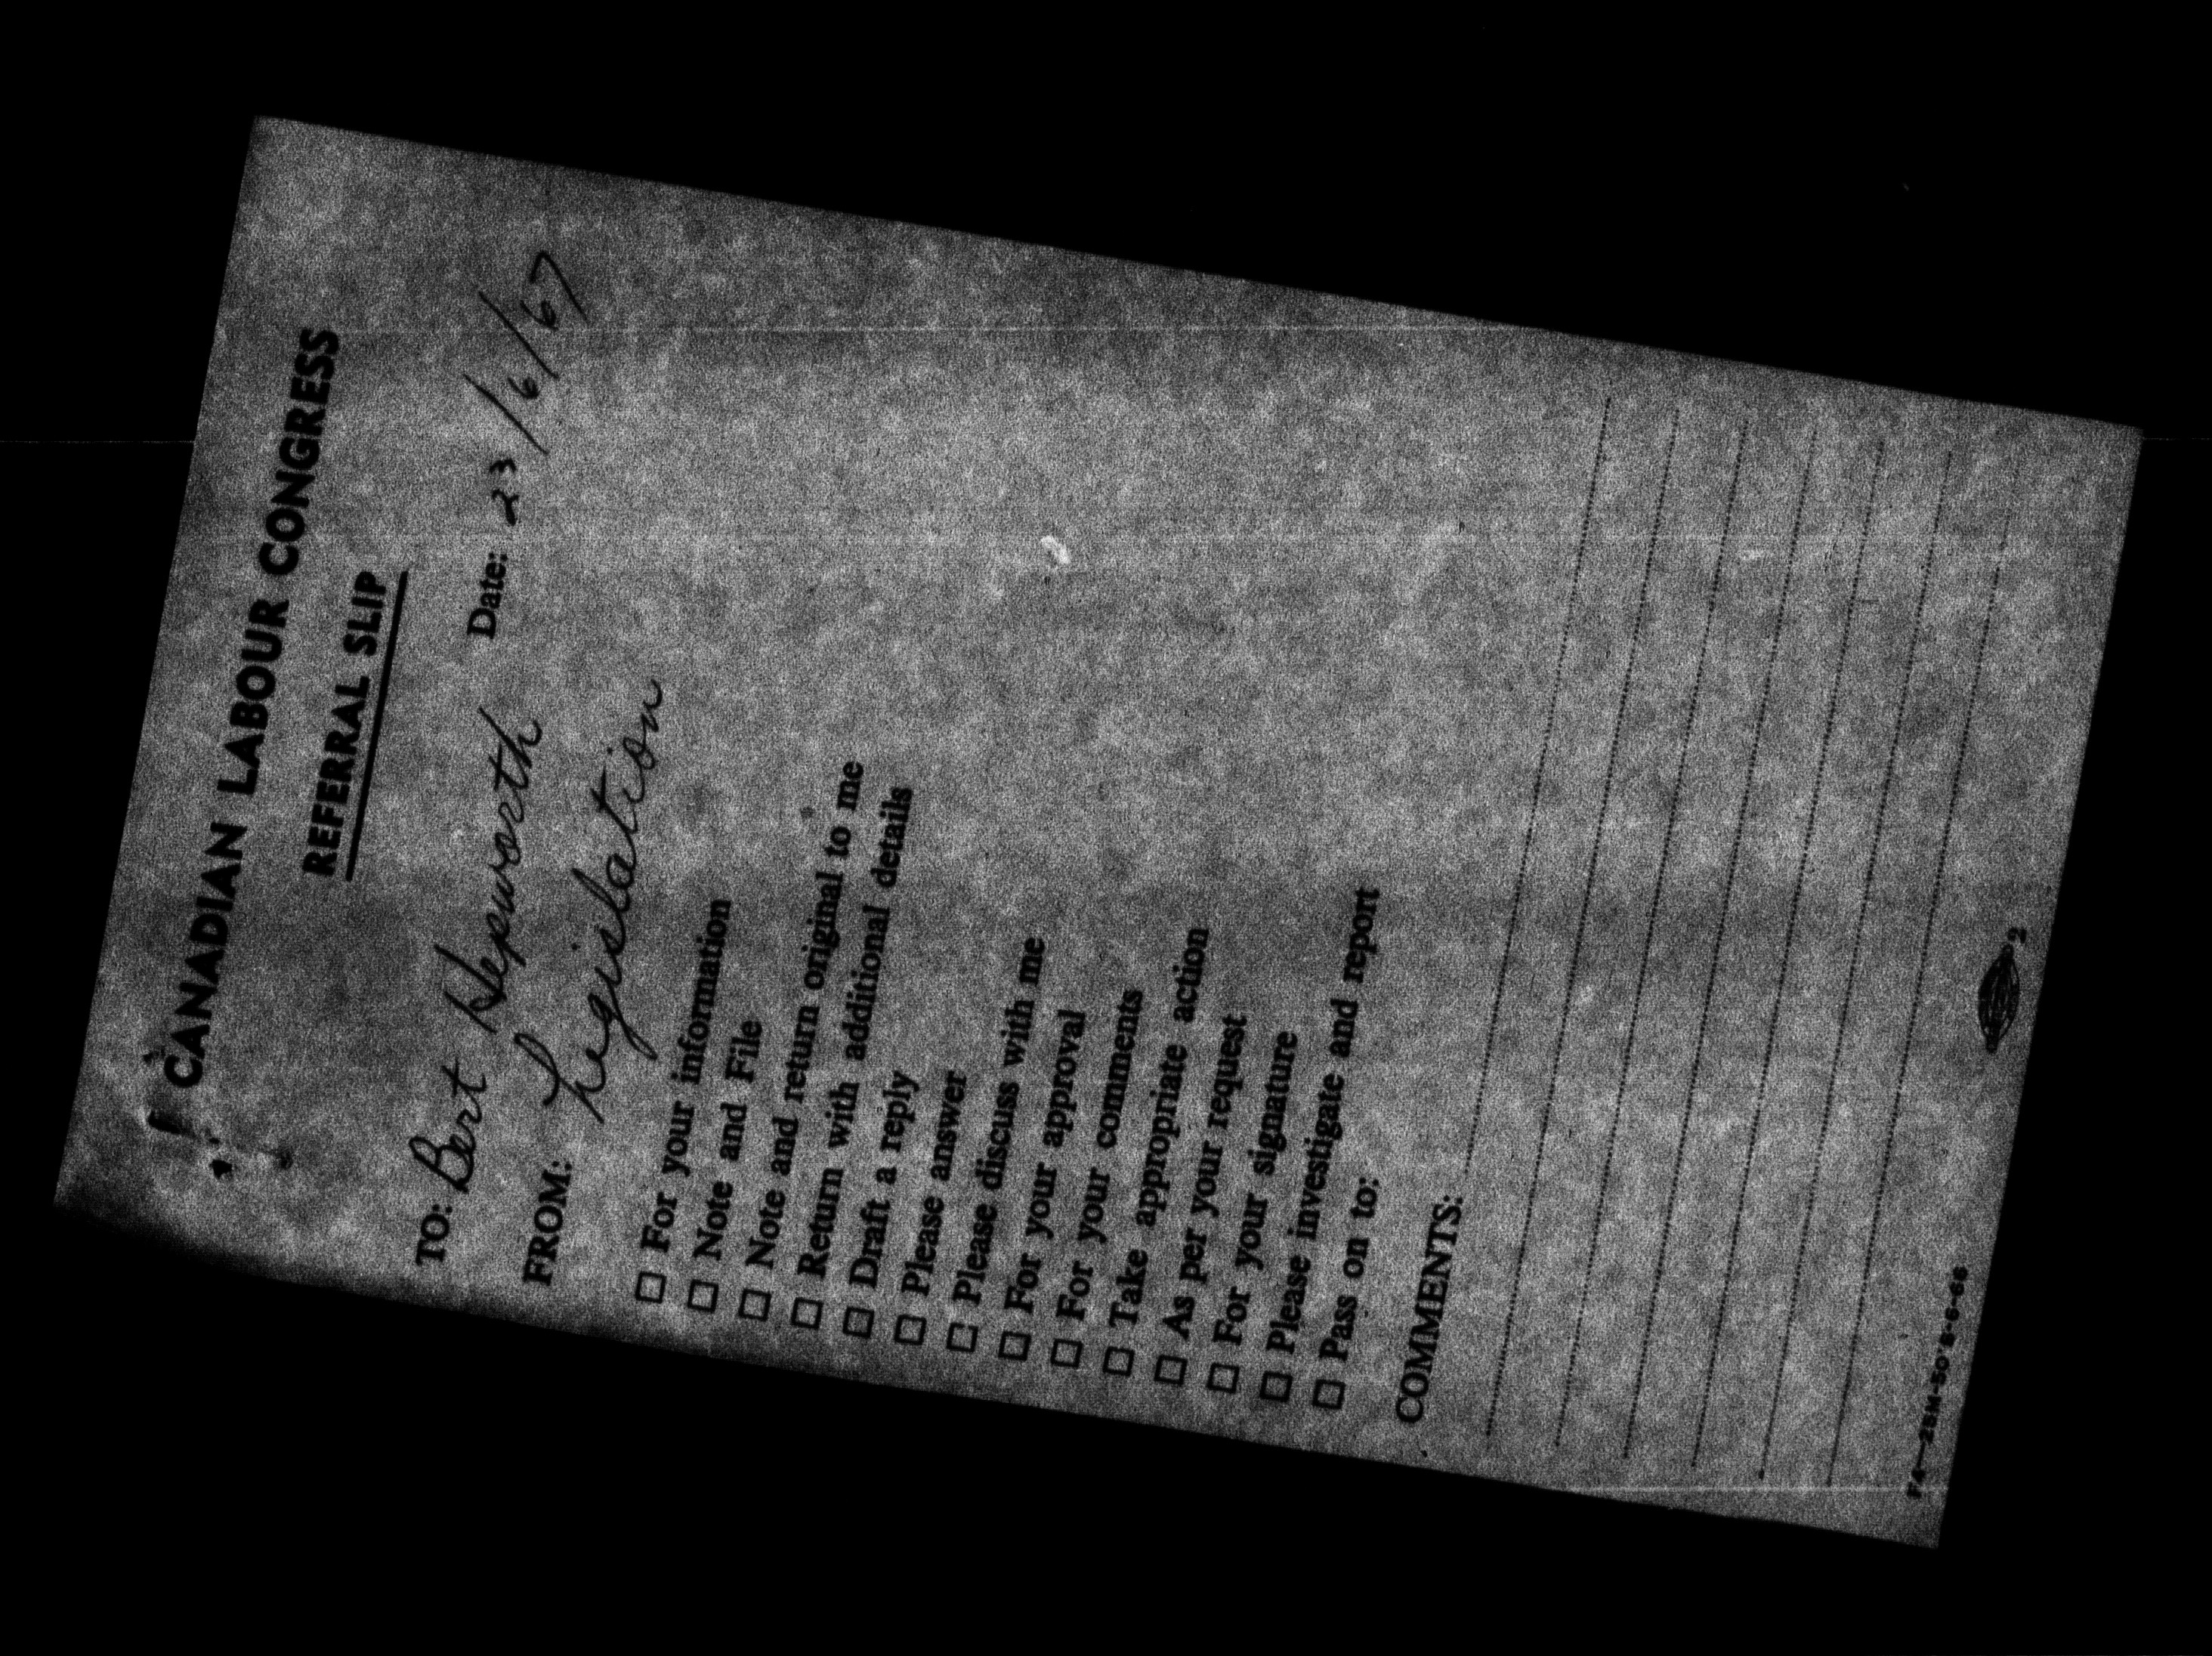 CANADIAN LABOUR CONGRESS
REFERRAL SLIP
TO: Bert Hepworth Date: 23/6/67
FROM: Legislation
☐ For your information
☐ Note and File
☐ Note and return original to me
☐ Return with additional details
☐ Draft a reply
☐ Please answer
☐ Please discuss with me
☐ For your approval
☐ For your comments
☐ Take appropriate action
☐ As per your request
☐ For your signature
☐ Please investigate and report
☐ Pass on to:
COMMENTS:
2